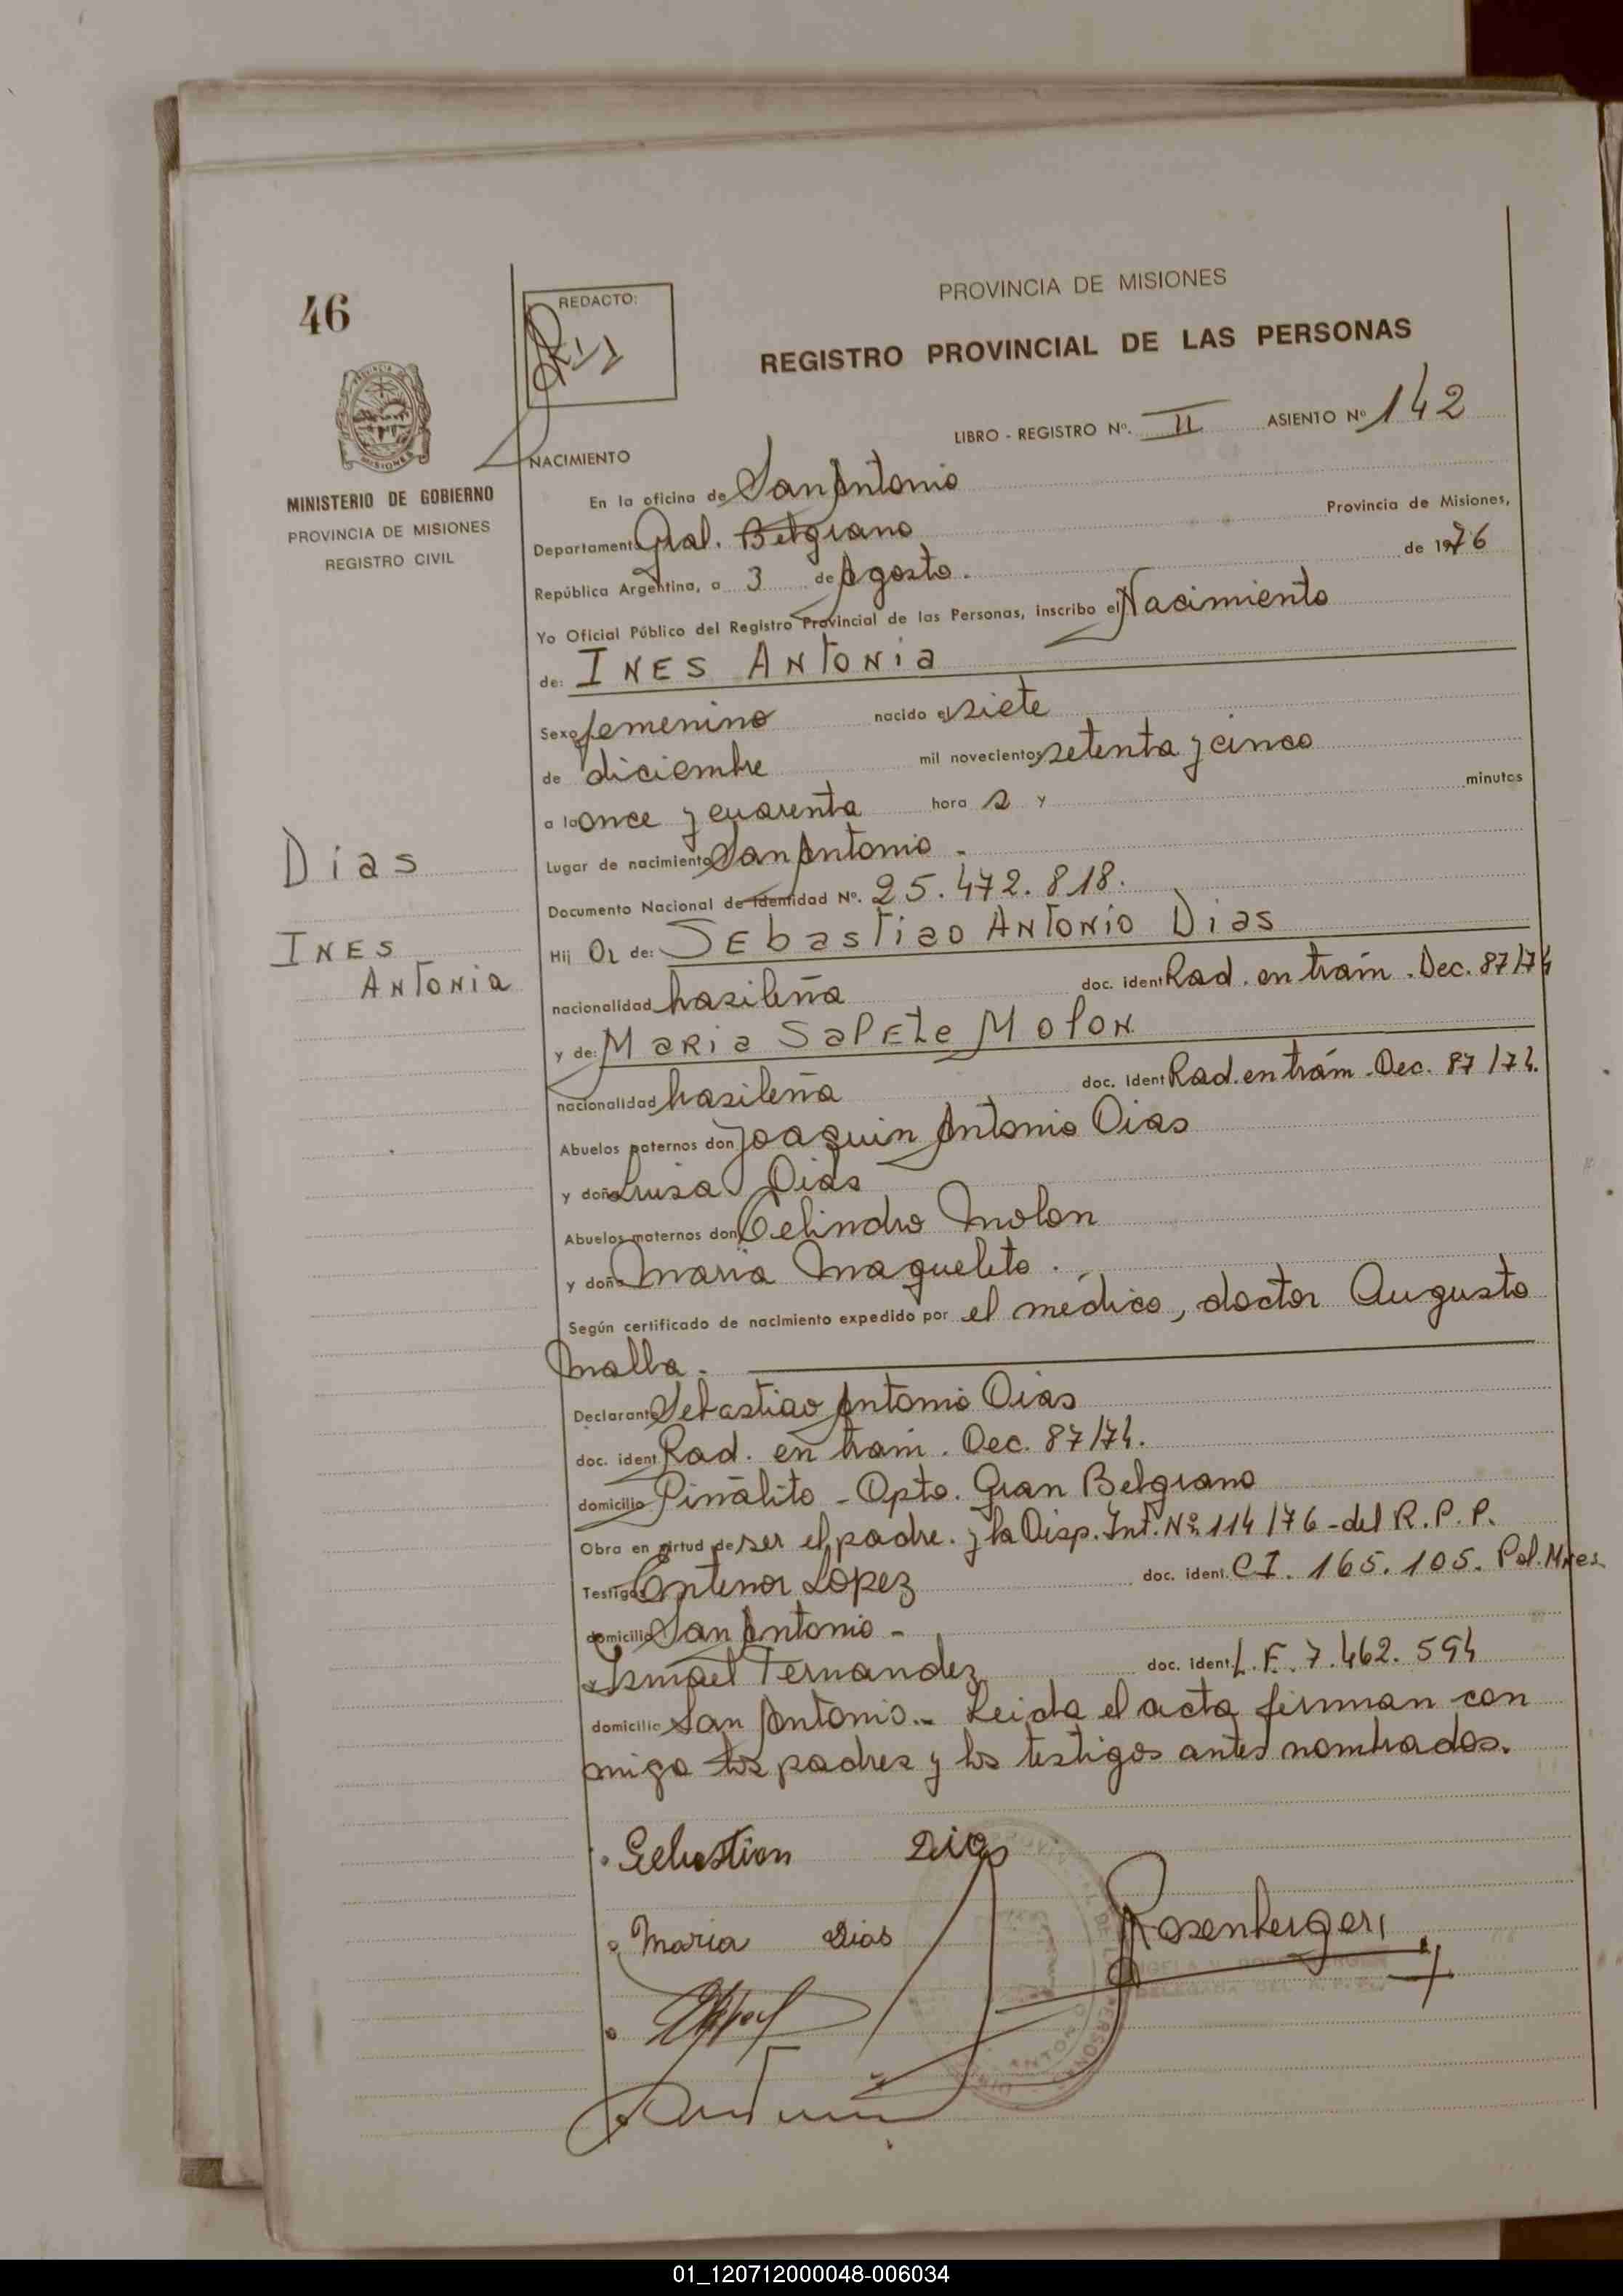 46
REDACTO:
PROVINCIA DE MISIONES
REGISTRO PROVINCIAL DE LAS PERSONAS
LIBRO - REGISTRO Nº. II ASIENTO Nº 142
PROVINCIA DE
MISIONES
MINISTERIO DE GOBIERNO
PROVINCIA DE MISIONES
REGISTRO CIVIL
NACIMIENTO
En la oficina de San Antonio
Departamento Gral. Belgrano Provincia de Misiones,
República Argentina, a 3 de Agosto. de 1976
Yo Oficial Público del Registro Provincial de las Personas, inscribo el Nacimiento
de: INES ANTONIA
Sexo femenino nacido el siete
de diciembre mil novecientos setenta y cinco
a la once y cuarenta hora s y minutos
Lugar de nacimiento San Antonio -
Documento Nacional de Identidad Nº. 25.472.818.
Dias
INES
ANTONIA
Hij a de: SEbastiao ANTONIO Dias
nacionalidad brasileña doc. ident Rad. en trám. Dec. 87/74
y de: MARIA SalEte MOlON
nacionalidad brasileña doc. ident Rad. en trám. Dec. 87/74.
Abuelos paternos don Joaquin Antonio Dias
y doña Luisa Dias
Abuelos maternos don Celindro Molon
y doña Maria
Según certificado de nacimiento expedido por el médico, doctor Augusto
Malla.
Declarante Sebastiao Antonio Dias
doc. ident Rad. en trám. Dec. 87/74.
domicilio Piñalito - Dpto. Gran Belgrano
Obra en virtud de ser el padre. y la Disp. Int. Nº 114/76 - del R.P.P.
Testigos Antenor Lopez doc. ident. CI. 165.105. Pol. Mnes
domicilio San Antonio -
y Ismael Fernandez doc. ident. L.E. 7.462.594
domicilio San Antonio.- Leida el acta firman con
migo los padres y los testigos antes nombrados.
Sebastian Dias
Maria Dias
Rosenberger
DELEGADA DEL R.P.P.
01_120712000048-006034